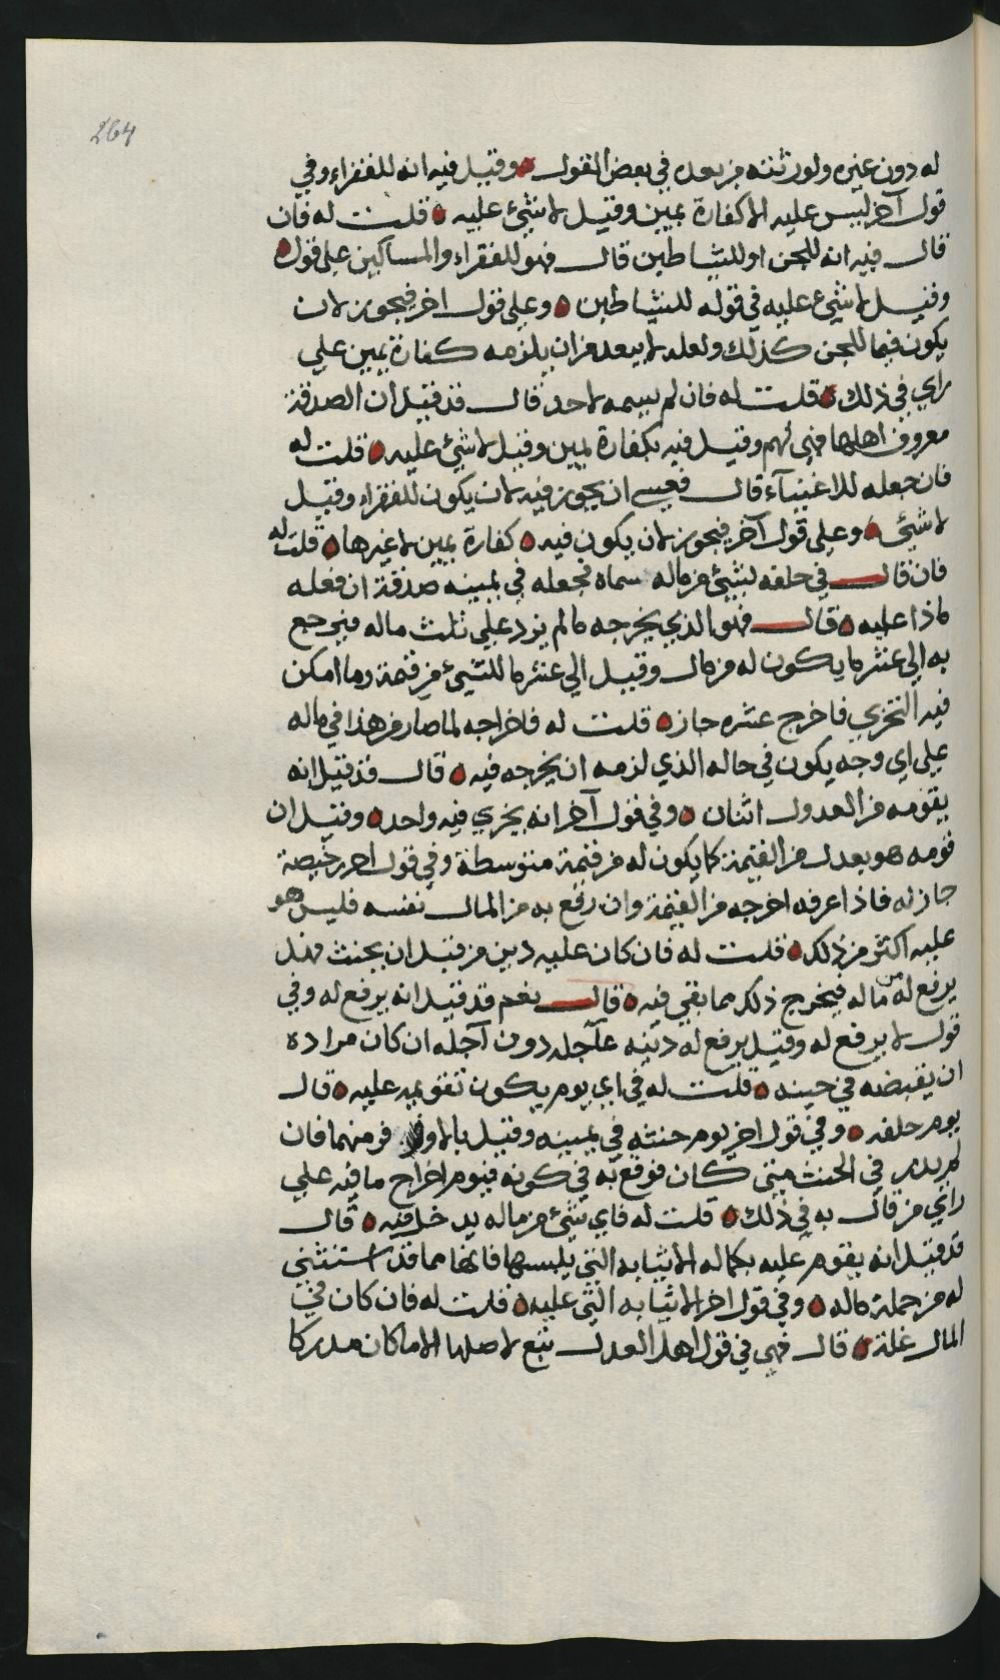 264
له دون غيره ولورثته من بعده في بعض القول وقيل فيه انه للفقراء وفي
قول آخر ليس عليه الا كفارة يمين وقيل لا شيئ عليه قلت له فان
قال فيه انه للجن او للشياطين قال فهو للفقراء والمساكين على قول
وقيل لا شيئ عليه في قوله للشياطين وعلى قول اخر فيجوز لان
يكون فيما للجن كذلك ولعله لا يبعد من ان يلزمه كفارة يمين على
راي في ذلك قلت له فان لم يسمه لاحد قال قد قيل ان الصدقة
معروف اهلها فهي لهم وقيل فيه بكفارة يمين وقيل لا شيئ عليه قلت له
فان جعله للاغنيآء قال فعسى ان يجوز فيه لان يكون للفقراء وقيل
لا شيئ وعلى قول آخر فيجوز لان يكون فيه كفارة يمين لا غيرها قلت له
فان قال في حلفه لشيئ من ماله سماه فجعله في يمينه صدقة ان فعله
ماذا عليه قال فهو الذي يخرجه مالم يزد على ثلث ماله فيرجع
به الى عشر ما يكون له من مال وقيل الى عشر ما للشيئ من قيمة وما امكن
فيه التحري فاخرج عشره جاز قلت له فاخراجه لما صار من هذا في ماله
على اي وجه يكون في حاله الذي لزمه ان يخرجه فيه قال قد قيل انه
يقومه من العدول اثنان وفي قول آخر انه يجزي فيه واحد وقيل ان
قومه هو بعدل من القيمة كما يكون له من قيمة متوسطة وفي قول اخر رخيصة
جاز له فاذا عرفه اخرجه من القيمة وان رفع به من المال نفسه فليس هو
عليه اكثر من ذلك قلت له فان كان عليه دين من قبل ان يحنث فهل
يرفع له من ماله فيخرج ذلك مما بقي فيه قال نعم قد قيل انه يرفع له وفي
قول لا يرفع له وقيل يرفع له دينه عآجله دون آجله ان كان مراده
ان يقبضه في حينه قلت له في اي يوم يكون تقويمه عليه قال
يوم حلفه وفي قول اخر يوم حنثه في يمينه وقيل بالاوفر منهما فان
لم يدر في الحنث متى كان فوقع به في كونه فيوم اخراج ما فيه على
راي من قال به في ذلك قلت له فاي شيئ من ماله يدخل فيه قال
قد قيل انه يقوم عليه بكماله الا ثيابه التي يلبسها فانها مما قد استثنى
له من جملة ماله وفي قول اخر الا ثيابه التي عليه قلت له فان كان في
المال غلة قال فهي في قول اهل العدل تبع لاصلها الا ما كان مدركا